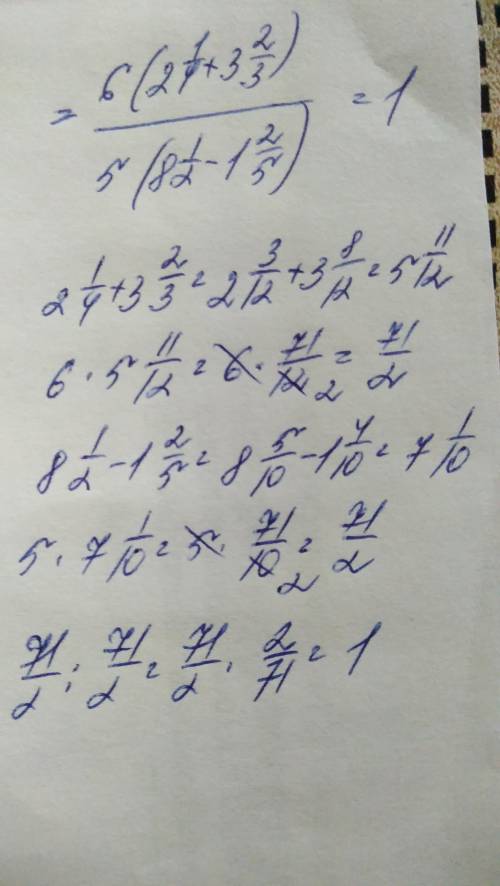 = 6(2 1/4 + 3 2/3) / 5(8 1/2 - 1 2/5) = 1
2 1/4 + 3 2/3 = 2 3/12 + 3 8/12 = 5 11/12
6 · 5 11/12 = 6 · 71/12 2 = 71/2
8 1/2 - 1 2/5 = 8 5/10 - 1 4/10 = 7 1/10
5 · 7 1/10 = 5 · 71/10 2 = 71/2
71/2 : 71/2 = 71/2 · 2/71 = 1